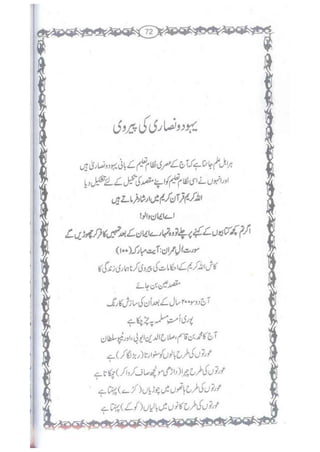 72
یہود و نصاریٰ کی پیروی
ہر اہل علم جانتا ہے کہ آج کے عصری نظام تعلیم کے بانی یہود و نصاریٰ ہیں
اور انہوں نے اسی نظام تعلیم کو اپنے مقصد کی تکمیل کے لئے تشکیل دیا
اللہ کریم قرآن کریم میں ارشاد فرماتے ہیں
اے ایمان والو!
اگر تم کچھ کتابیوں کے کہنے پر چلے تو وہ تمہارے ایمان کے بعد تمھیں کافر کر چھوڑیں گے
سورت اٰل عمران: آیت مبارکہ (۱۰۰)
کاش اللہ کریم کے احکامات کی پیروی کرنا ہماری زندگی کا
مقصد عین بن جائے
آج دو سو سال کے بعد اُن کی سازش کا رنگ
پوری اُمت مسلمہ پہ چڑھ چکا ہے
آج کا محمد بن قاسم، صلاح الدین ایوبی، اور ٹیپو سلطان
عورتوں کی طرح بالوں کو سنوارتا (ربڑ لگا کر) ہے
عورتوں کی طرح چہرا (داڑھی مونچھ صاف کروا کر) چمکاتا ہے
عورتوں کی طرح ہاتھوں میں چوڑیاں (کڑے) پہنتا ہے
عورتوں کی طرح کانوں میں بالیاں (کوکے) پہنتا ہے